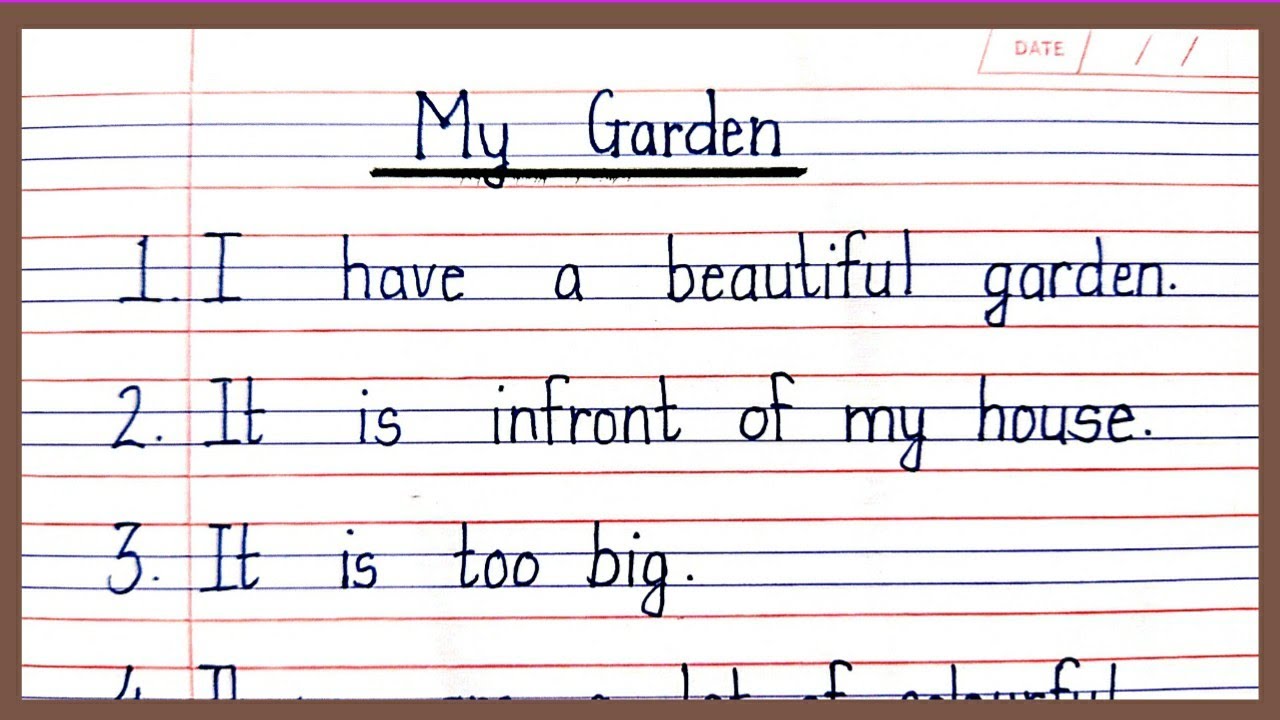 DATE / /
My Garden
1. I have a beautiful garden.
2. It is infront of my house.
3. It is too big.
4. a lot of colourful